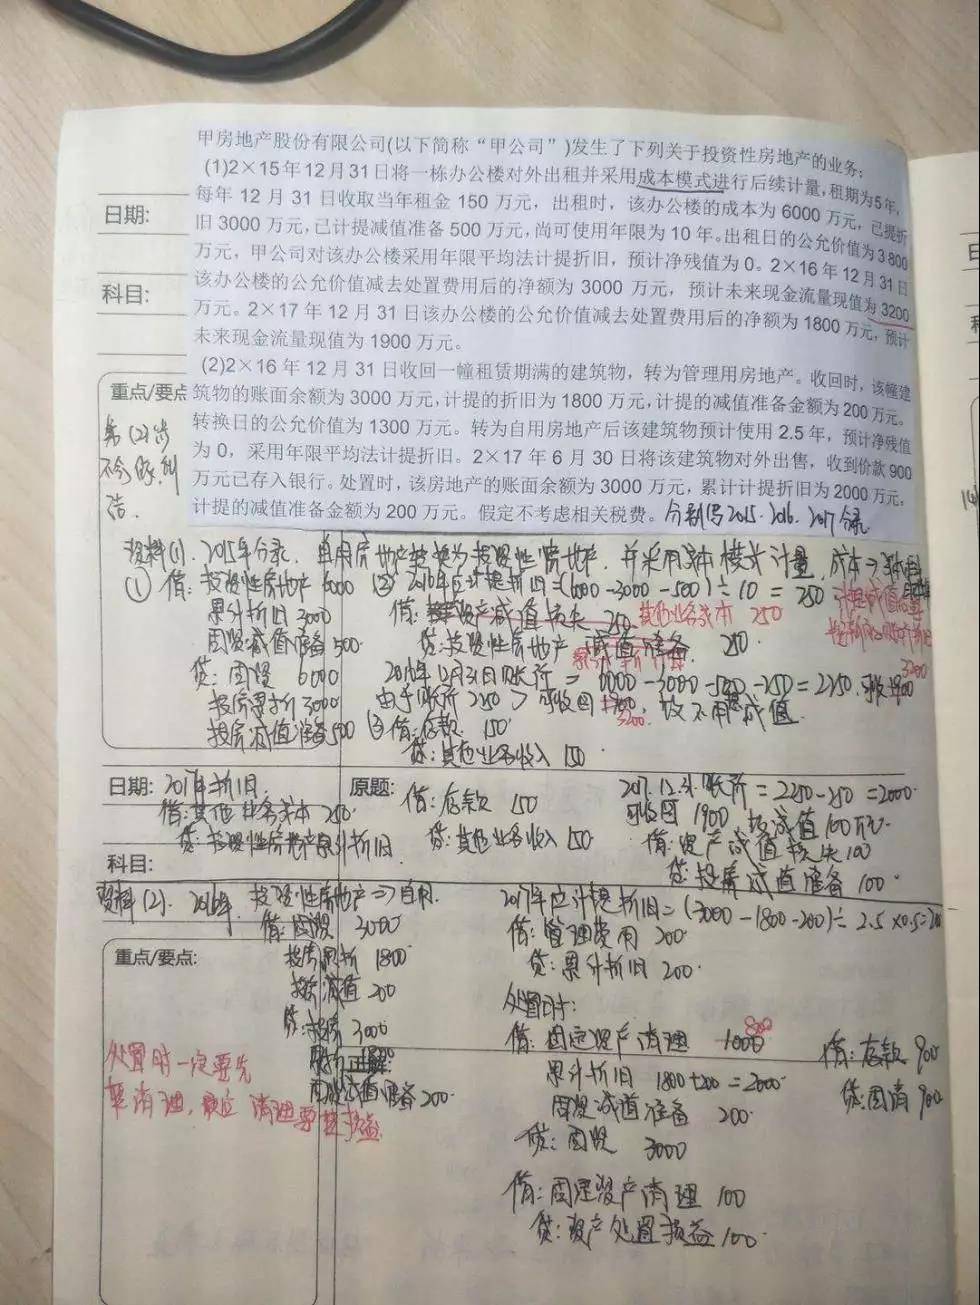 甲房地产股份有限公司(以下简称“甲公司”)发生了下列关于投资性房地产的业务:
(1)2×15年12月31日将一栋办公楼对外出租并采用成本模式进行后续计量,租期为5年,
每年12月31日收取当年租金150万元,出租时,该办公楼的成本为6000万元,已提折
旧3000万元,已计提减值准备500万元,尚可使用年限为10年。出租日的公允价值为3800
万元,甲公司对该办公楼采用年限平均法计提折旧,预计净残值为0。2×16年12月31日
该办公楼的公允价值减去处置费用后的净额为3000万元,预计未来现金流量现值为3200
万元。2×17年12月31日该办公楼的公允价值减去处置费用后的净额为1800万元,预计
未来现金流量现值为1900万元。
(2)2×16年12月31日收回一幢租赁期满的建筑物,转为管理用房地产。收回时,该幢建
筑物的账面余额为3000万元,计提的折旧为1800万元,计提的减值准备金额为200万元。
转换日的公允价值为1300万元。转为自用房地产后该建筑物预计使用2.5年,预计净残值
为0,采用年限平均法计提折旧。2×17年6月30日将该建筑物对外出售,收到价款900
万元已存入银行。处置时,该房地产的账面余额为3000万元,累计计提折旧为2000万元,
计提的减值准备金额为200万元。假定不考虑相关税费。分别写2015.2016.2017分录
日期:
科目:
重点/要点
第(2)步
资料(1). 2015年分录. 自用房地产转换为投资性房地产,并采用成本模式计量,成本⇒
① 借:投资性房地产 6000
累计折旧 3000
固资减值准备 500
贷:固资 6000
投房累折 3000
投房减值准备 500
② 2016年应计提折旧=(6000-3000-500)÷10=250
借:资产减值损失 250 其他业务成本 250
贷:投资性房地产减值准备 250
累计折旧
2016年12月31日账价=6000-3000-500-250=2250. 可收 1900
3200
由于账价2250>可收回1900,故不用减值
3200
③ 借:存款 150
贷:其他业务收入 150
日期: 2017年折旧
借:其他业务成本 250
贷:投资性房地产累计折旧
原题: 借:存款 150
贷:其他业务收入 150
2017.12.31.账价=2250-250=2000.
可收回1900 故减值100万元
借:资产减值损失 100
贷:投房减值准备 100
科目:
资料(2). 2016年. 投资性房地产⇒自用.
借:固资 3000
投房累折 1800
投房减值 200
贷:投房 3000
累折 1800
正解:
固资减值准备 200
2017年应计提折旧=(3000-1800-200)÷2.5×0.5=200
借:管理费用 200
贷:累计折旧 200
处置时:
借:固定资产清理 1000 800
累计折旧 1800+200=2000
固资减值准备 200
贷:固资 3000
借:存款 900
贷:固清 900
借:固定资产清理 100
贷:资产处置损益 100
重点/要点:
处置时一定要先
清理,最后清理要转损益